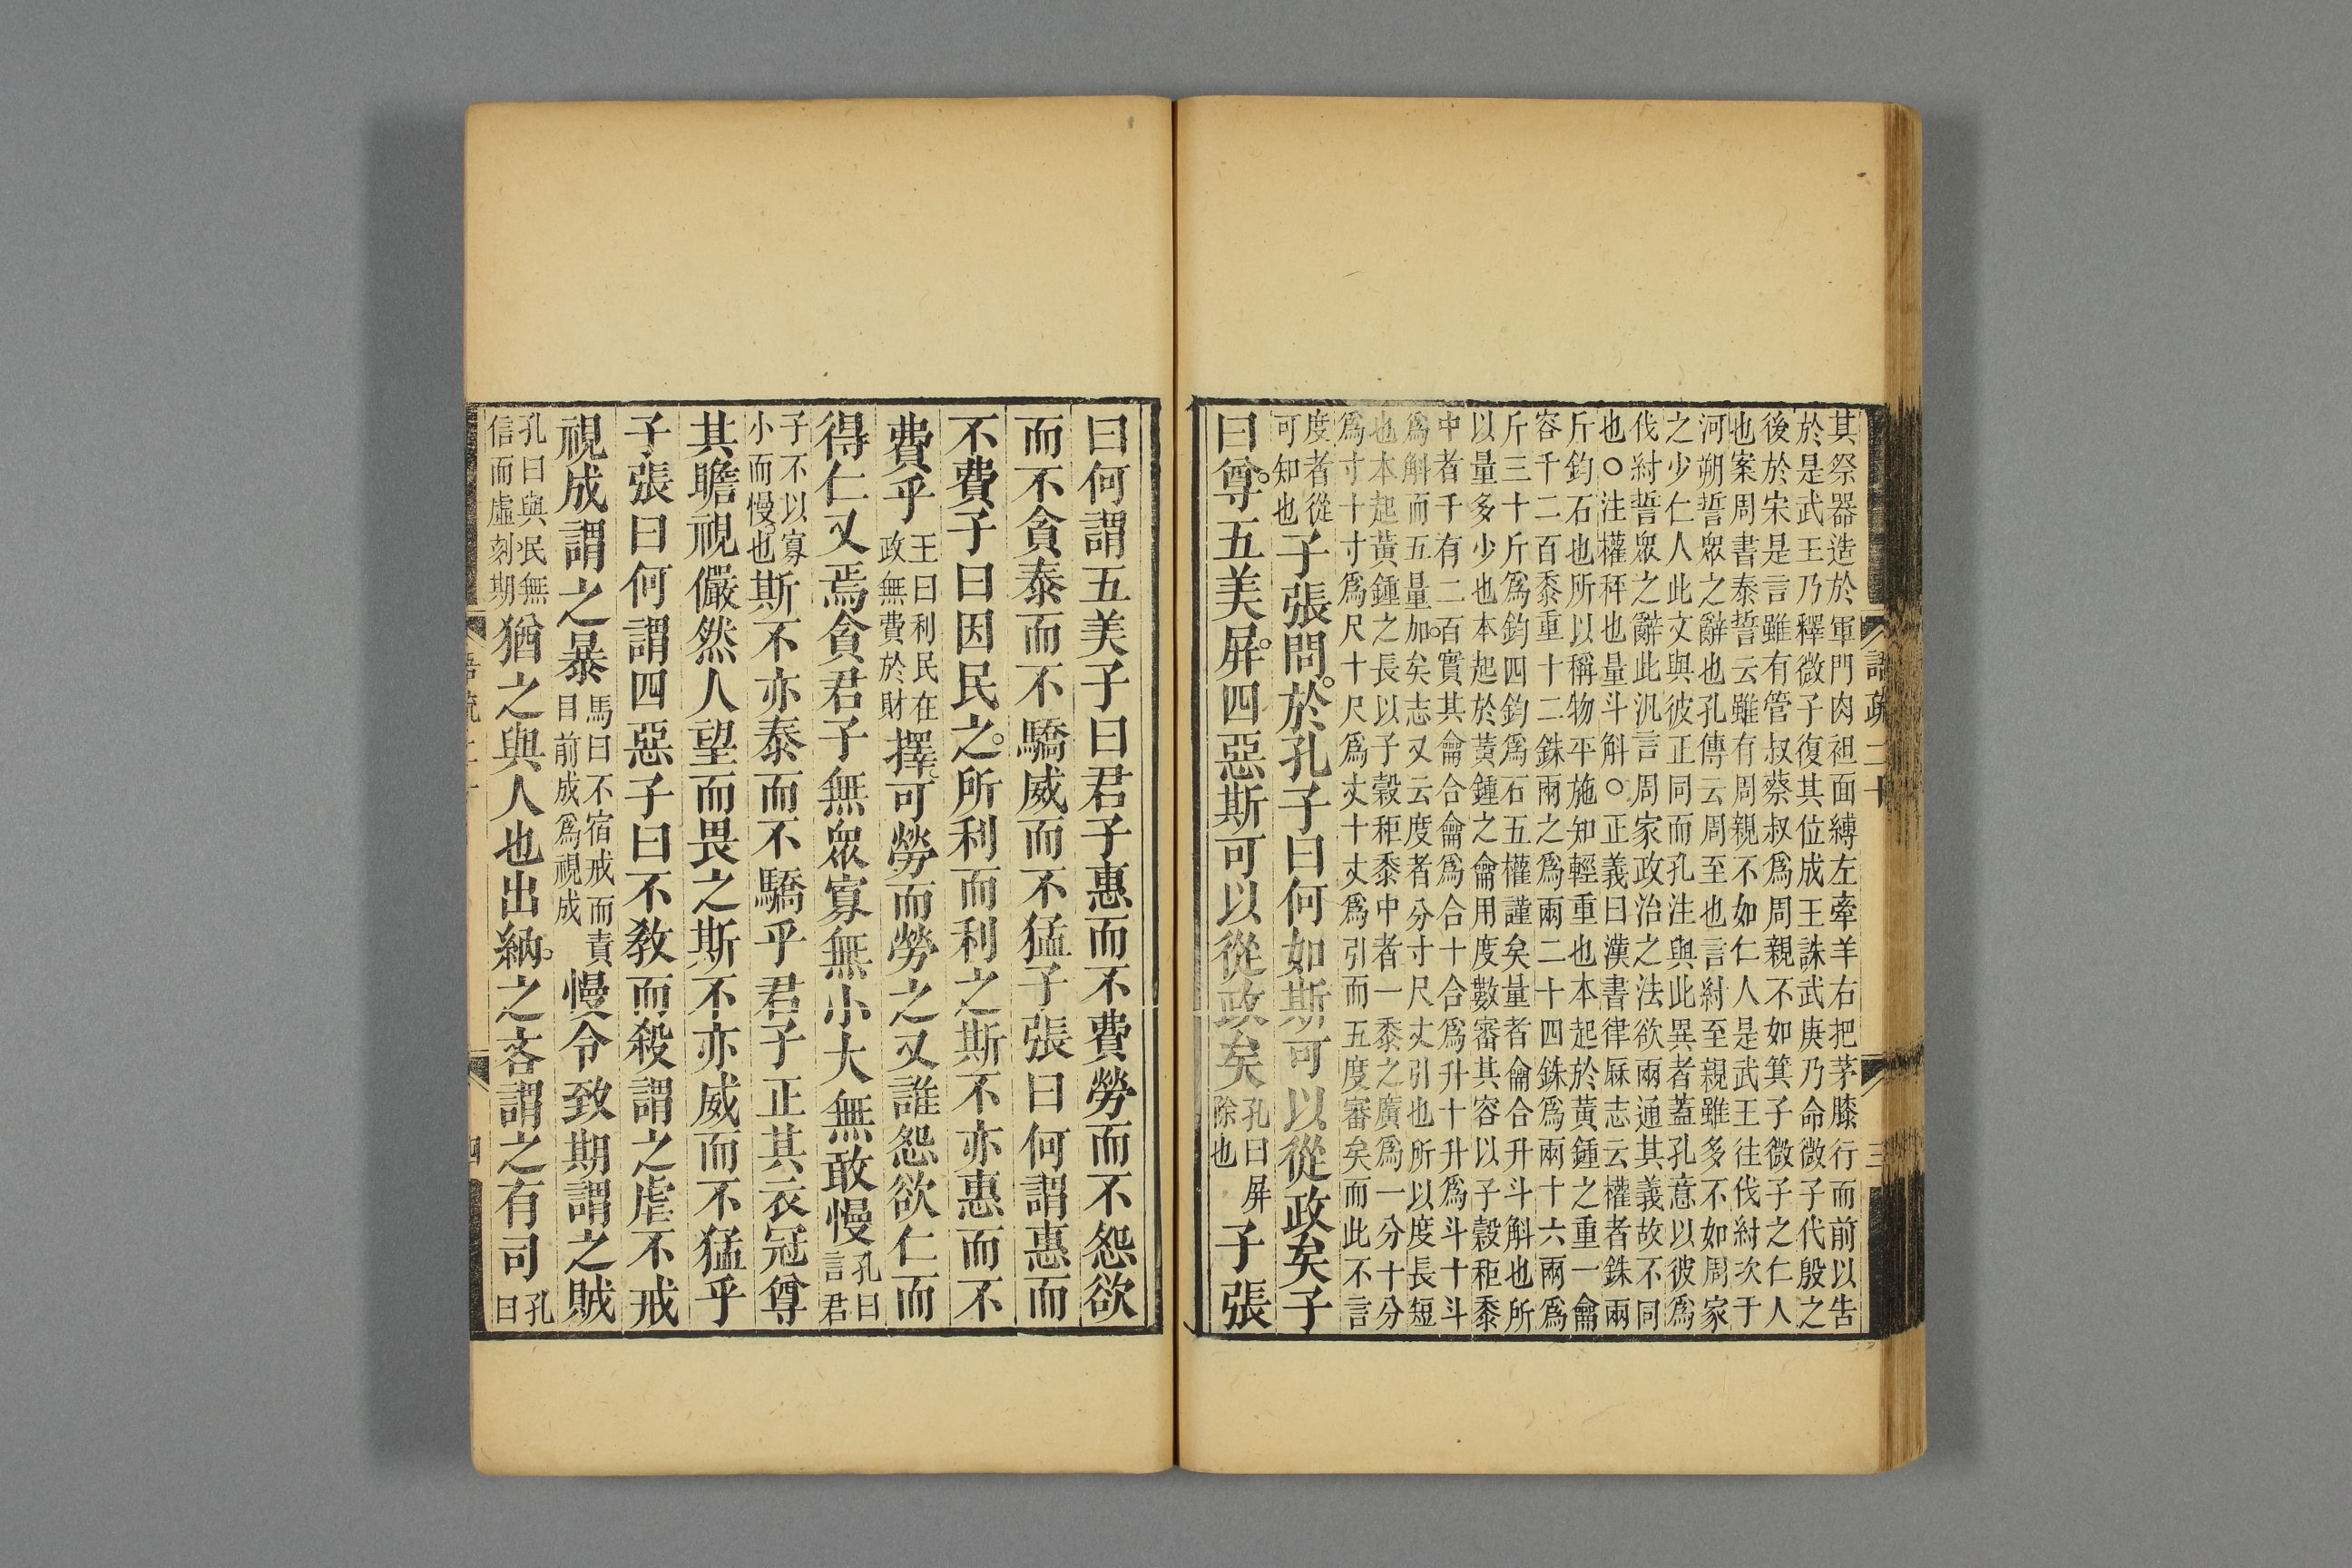 其祭器造於軍門肉袒面縛左牽羊右把茅膝行而前以告
於是武王乃釋微子復其位成王誅武庚乃命微子代殷之
後於宋是言雖有管叔蔡叔爲周親不如箕子微子之仁人
也案周書泰誓云雖有周親不如仁人是武王往伐紂次于
河朔誓眾之辭也孔傳云周至也言紂至親雖多不如周家
之少仁人此文與彼正同而孔注與此異者蓋孔意以彼爲
伐紂誓眾之辭此汎言周家政治之法欲兩通其義故不同
也○注權秤也量斗斛○正義曰漢書律厤志云權者銖兩
斤鈞石也所以稱物平施知輕重也本起於黃鍾之重一龠
容千二百黍重十二銖兩之爲兩二十四銖爲兩十六兩爲
斤三十斤爲鈞四鈞爲石五權謹矣量者龠合升斗斛也所
以量多少也本起於黃鍾之龠用度數審其容以子穀秬黍
中者千有二百實其龠合龠爲合十合爲升十升爲斗十斗
爲斛而五量加矣志又云度者分寸尺丈引也所以度長短
也本起黃鍾之長以子穀秬黍中者一黍之廣爲一分十分
爲寸十寸爲尺十尺爲丈十丈爲引而五度審矣而此不言
度者從
可知也
子張問於孔子曰何如斯可以從政矣子
曰尊五美屏四惡斯可以從政矣
孔曰屏
除也
子張
語疏二十
三
曰何謂五美子曰君子惠而不費勞而不怨欲
而不貪泰而不驕威而不猛子張曰何謂惠而
不費子曰因民之所利而利之斯不亦惠而不
費乎
王曰利民在
政無費於財
擇可勞而勞之又誰怨欲仁而
得仁又焉貪君子無眾寡無小大無敢慢
孔曰
言君
子不以寡
小而慢也
斯不亦泰而不驕乎君子正其衣冠尊
其瞻視儼然人望而畏之斯不亦威而不猛乎
子張曰何謂四惡子曰不教而殺謂之虐不戒
視成謂之暴
馬曰不宿戒而責
目前成爲視成
慢令致期謂之賊
孔曰與民無
信而虛刻期
猶之與人也出納之吝謂之有司
孔
曰